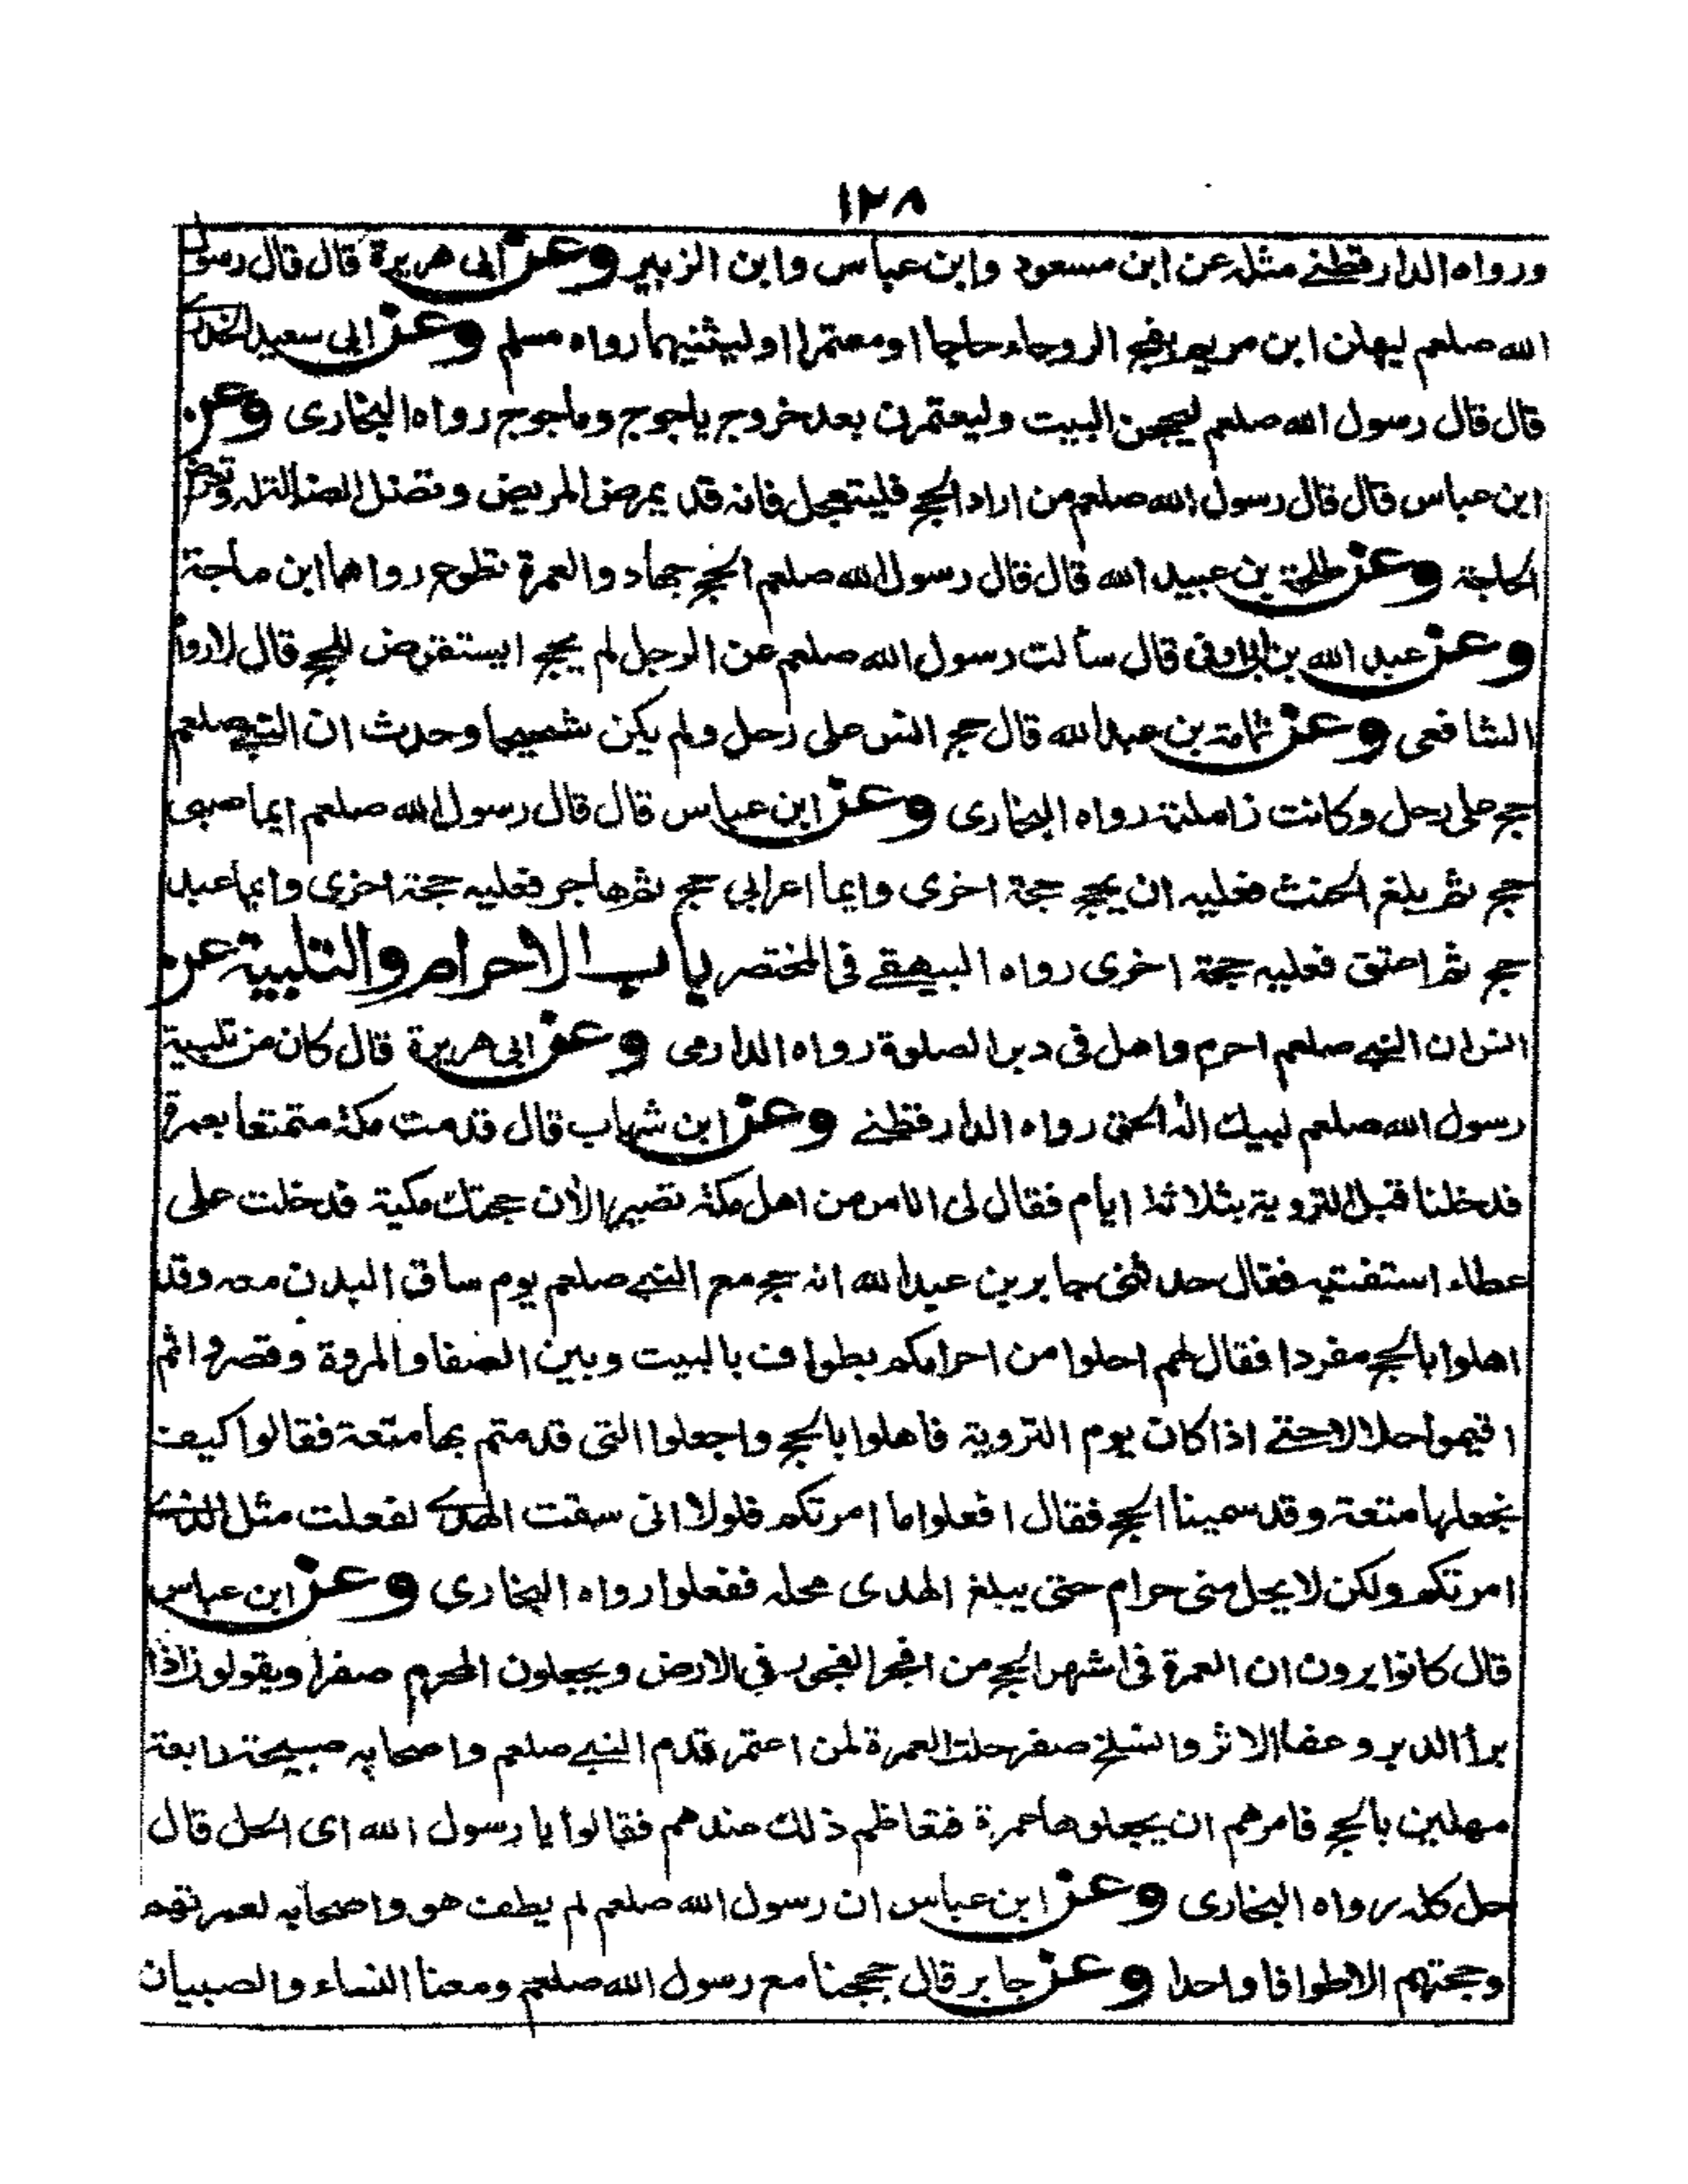 ١٢٨
ورواه الدارقطنے مثله عن ابن مسعود وابن عباس وابن الزبير وعن ابى هريرة قال قال رسول
الله صلعم ليهلن ابن مريم بفج الروحاء حاجا او معتمرا او ليثنيهما رواه مسلم وعن ابى سعيد الخدرے
قال قال رسول الله صلعم ليحجن البيت وليعتمرن بعد خروج ياجوج وماجوج رواه البخارى وعن
ابن عباس قال قال رسول الله صلعم من اراد الحج فليتعجل فانه قد يمرض المريض وتضل الضالة وتعرض
الحاجة وعن طلحة بن عبيد الله قال قال رسول الله صلعم الحج جهاد والعمرة تطوع رواهما ابن ماجة
وعن عبد الله بن ابى اوفى قال سألت رسول الله صلعم عن الرجل لم يحج ايستقرض للحج قال لا رواه
الشافعى وعن ثمامة بن عبد الله قال حج انس على رحل ولم يكن شحيحا وحدث ان النبے صلعم
حج على رحل وكانت زاملته رواه البخارى وعن ابن عباس قال قال رسول الله صلعم ايما صبى
حج ثم بلغ الحنث فعليه ان يحج حجة اخرى وايما اعرابى حج ثم هاجر فعليه حجة اخرى وايما عبد
حج ثم اعتق فعليه حجة اخرى رواه البيهقے فى المختصر باب الاحرام والتلبية عن
انس ان النبے صلعم احرم واهل فى دبر الصلوة رواه الدارمى وعن ابى هريرة قال كان من تلبية
رسول الله صلعم لبيك اله الحق رواه الدارقطنے وعن ابن شهاب قال قدمت مكة متمتعا بعمرة
فدخلنا قبل التروية بثلاثة ايام فقال لى اناس من اهل مكة تصير الأن حجتك مكية فدخلت على
عطاء استفتيه فقال حدثنى جابر بن عبد الله انه حج مع النبے صلعم يوم ساق البدن معه وقد
اهلوا بالحج مفردا فقال لهم احلوا من احرامكم بطواف بالبيت وبين الصفا والمروة وقصروا ثم
اقيموا حلالا حتے اذا كان يوم التروية فاهلوا بالحج واجعلوا التى قدمتم بها متعة فقالوا كيف
نجعلها متعة وقد سمينا الحج فقال افعلوا ما امرتكم فلولا انى سقت الهدے لفعلت مثل الذے
امرتكم ولكن لا يحل منى حرام حتى يبلغ الهدى محله ففعلوا رواه البخارى وعن ابن عباس
قال كانوا يرون ان العمرة فى اشهر الحج من افجر الفجور فى الارض ويجعلون المحرم صفرا ويقولون اذا
برأ الدبر وعفا الاثر وانسلخ صفر حلت العمرة لمن اعتمر قدم النبے صلعم واصحابه صبيحة رابعة
مهلين بالحج فامرهم ان يجعلوها عمرة فتعاظم ذلك عندهم فقالوا يا رسول الله اى الحل قال
حل كله رواه البخارى وعن ابن عباس ان رسول الله صلعم لم يطف هو واصحابه لعمرتهم
وحجتهم الا طوافا واحدا وعن جابر قال حججنا مع رسول الله صلعم ومعنا النساء والصبيان